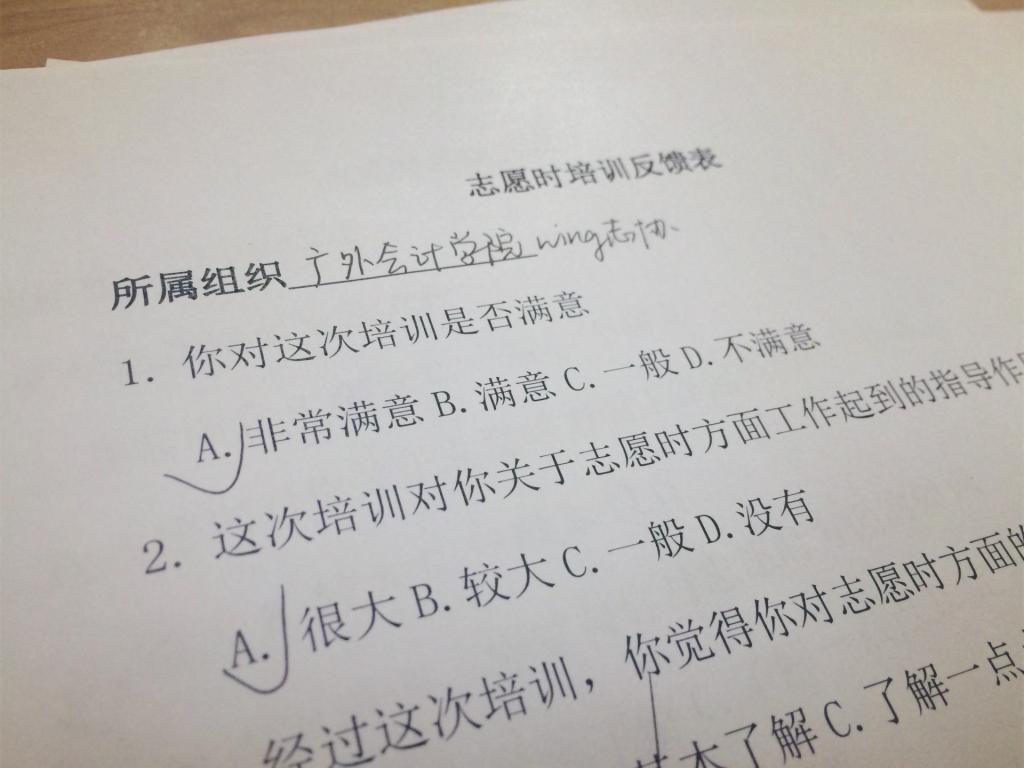 志愿时培训反馈表
所属组织 广外会计学院wing志协、
1. 你对这次培训是否满意
A. 非常满意 B. 满意 C. 一般 D. 不满意
2. 这次培训对你关于志愿时方面工作起到的指导作
A. 很大 B. 较大 C. 一般 D. 没有
经过这次培训，你觉得你对志愿时方面的
基本了解 C. 了解一点